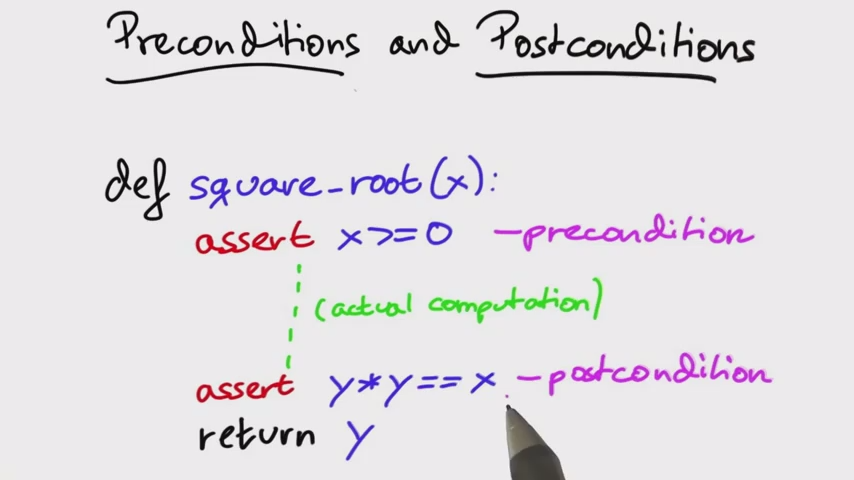 Preconditions and Postconditions
def square_root(x):
assert x>=0 - precondition
(actual computation)
assert y*y==x - postcondition
return y